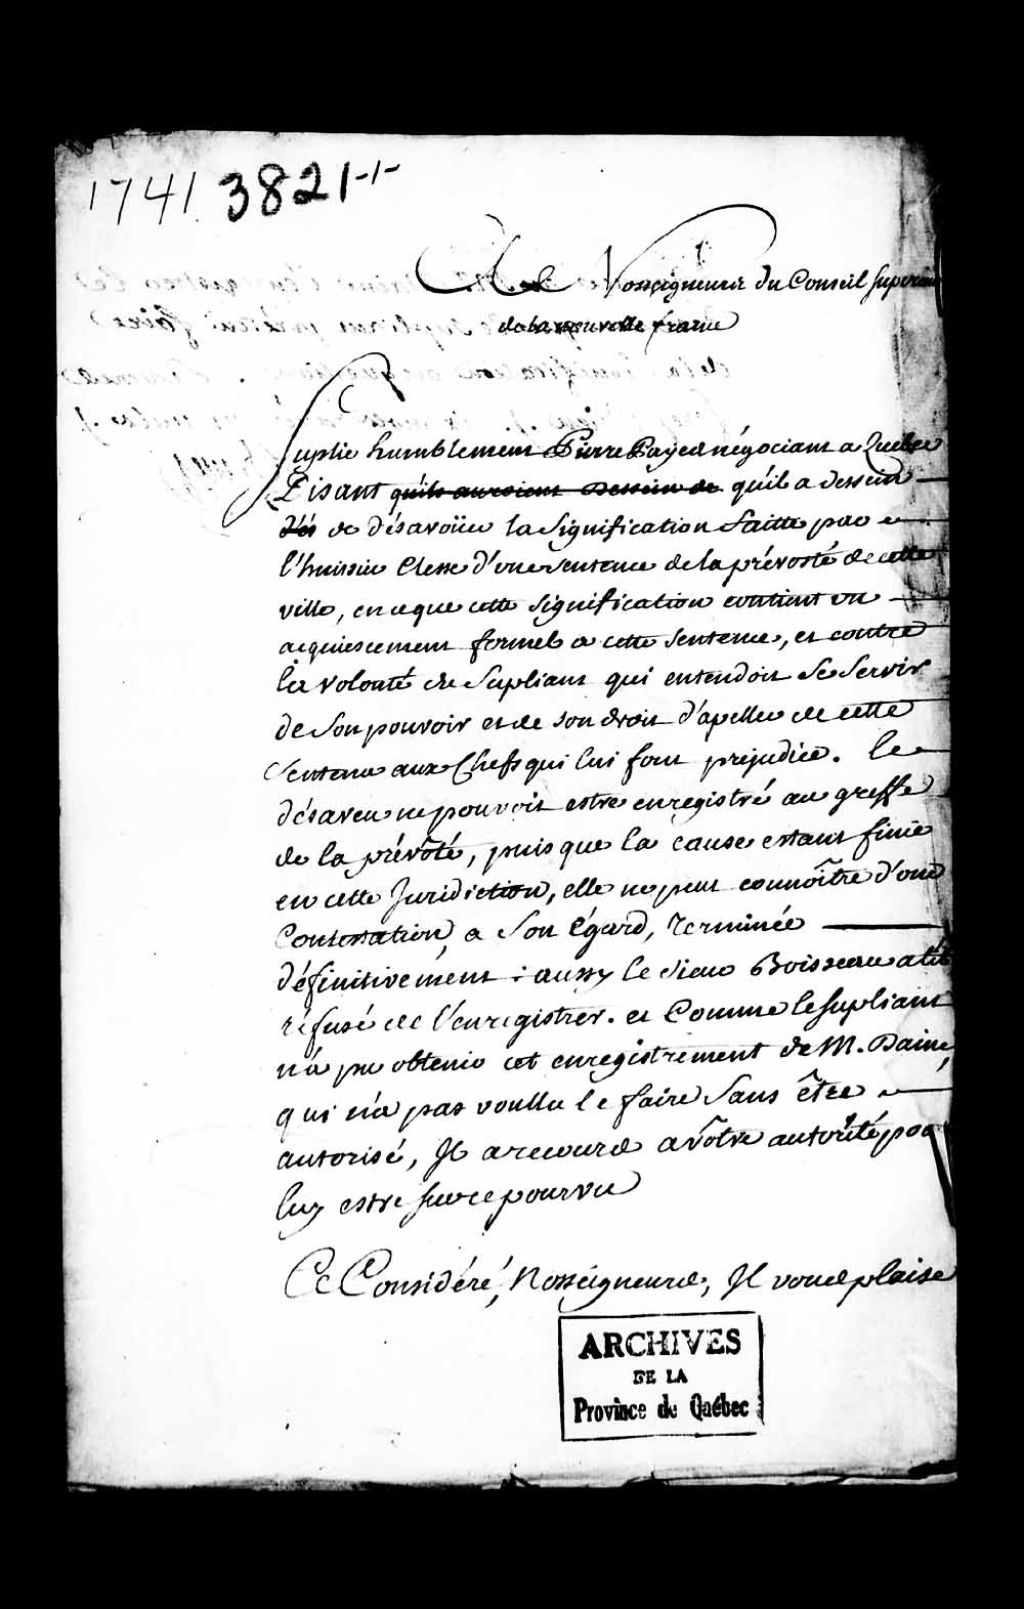 1741. 3821-1-
A Nosseigneurs du Conseil Superieur
de la nouvelle france
Suplie humblement Pierre Payed négociant a Quebec
Disant qu'ils auroient dessein de qu'il a dessein
dés de désavoüer la Signification faitte par
l'huissier Clesse d'une sentence de la prévosté de cette
ville, en ce que cette signification contient un
acquiescement formel a cette sentence, et contre
la volonté du Supliant qui entendoit Se Servir
de Son pouvoir et de son droit d'apeller de cette
Sentence aux Chefs qui lui font prejudice. le
désaveu ne pouvoit estre enregistré au greffe
de la prévôté, puis que la cause estant finie
en cette Juridiction, elle ne peut connoître d'une
Contestation, a Son égard, terminée
définitivement : aussy le Sieur Boisseau a t'il
réfusé de l'enregistrer. et Comme le Supliant
n'a pu obtenir cet enregistrement de M. Daine,
qui n'a pas voullu le faire Sans être
autorisé, Il a recours a vôtre autorité por
luy estre sur ce pourvu
Ce Considéré, Nosseigneurs, Il vous plaise
ARCHIVES
DE LA
Province de Québec